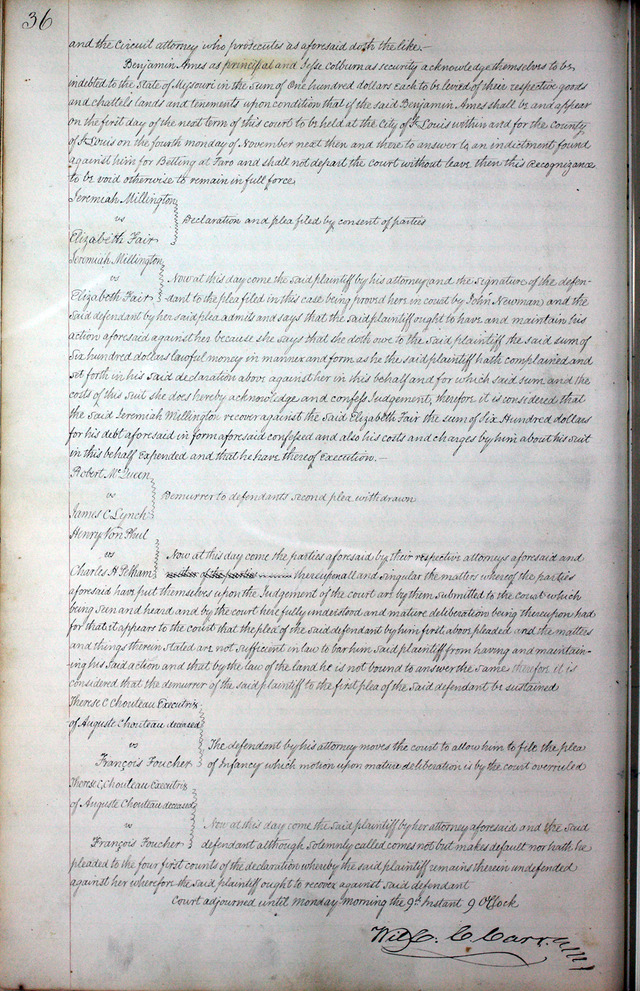 36
and the Circuit attorney who prosecutes as aforesaid doth the like.—
Benjamin Ames as principal and Jesse Colburn as security acknowledge themselves to be
indebted to the State of Missouri in the sum of One hundred dollars each to be levied of their respective goods
and chattels lands and tenements upon condition that if the said Benjamin Ames shall be and appear
on the first day of the next term of this court to be held at the City of St Louis within and for the County
of St Louis on the fourth monday of November next then and there to answer to an indictment found
against him for Betting at Faro and shall not depart the Court without leave then this Recognizance
to be void otherwise to remain in full force
Jeremiah Millington
vs Declaration and plea filed by consent of parties
Elizabeth Fair
Jeremiah Millington
vs Now at this day come the said plaintiff by his attorney and the signature of the defen-
Elizabeth Fair dant to the plea filed in this case being proved here in court by John Newman and the
said defendant by her said plea admits and says that the said plaintiff ought to have and maintain his
action aforesaid against her because she says that she doth owe to the said plaintiff the said sum of
Six hundred dollars lawful money in manner and form as he the said plaintiff hath complained and
set forth in his said declaration above against her in this behalf and for which said sum and the
costs of this suit she does hereby acknowledge and confess Judgement, therefore it is considered that
the said Jeremiah Millington recover against the said Elizabeth Fair the sum of Six Hundred dollars
for his debt aforesaid in form aforesaid confessed and also his costs and charges by him about his suit
in this behalf expended and that he have thereof execution.—
Robert McQueen
vs Demurrer to defendants second plea withdrawn
James C Lynch
Henry Von Phul
vs Now at this day come the parties aforesaid by their respective attorneys aforesaid and
Charles H Pelham thereup all and singular the matters whereof the parties
aforesaid have put themselves upon the Judgement of the court are by them submitted to the court which
being seen and heard and by the court here fully understood and mature deliberation being thereupon had
for that it appears to the court that the plea of the said defendant by him first above pleaded and the matters
and things therein stated are not sufficient in law to bar him said plaintiff from having and maintain-
ing his said action and that by the law of the land he is not bound to answer the same therefore it is
considered that the demurrer of the said plaintiff to the first plea of the said defendant be sustained
Therese C Chouteau Executrix
of Auguste Chouteau deceased
vs The defendant by his attorney moves the court to allow him to file the plea
François Foucher of Infancy which motion upon mature deliberation is by the court overruled
Therese C Chouteau Executrix
of Auguste Chouteau deceased
vs Now at this day come the said plaintiff by her attorney aforesaid and the said
François Foucher defendant although solemnly called comes not but makes default nor hath he
pleaded to the four first counts of the declaration whereby the said plaintiff remains therein undefended
against her wherefore the said plaintiff ought to recover against said defendant
Court adjourned until monday morning the 9th Instant 9 OClock
Wil. C. Carr